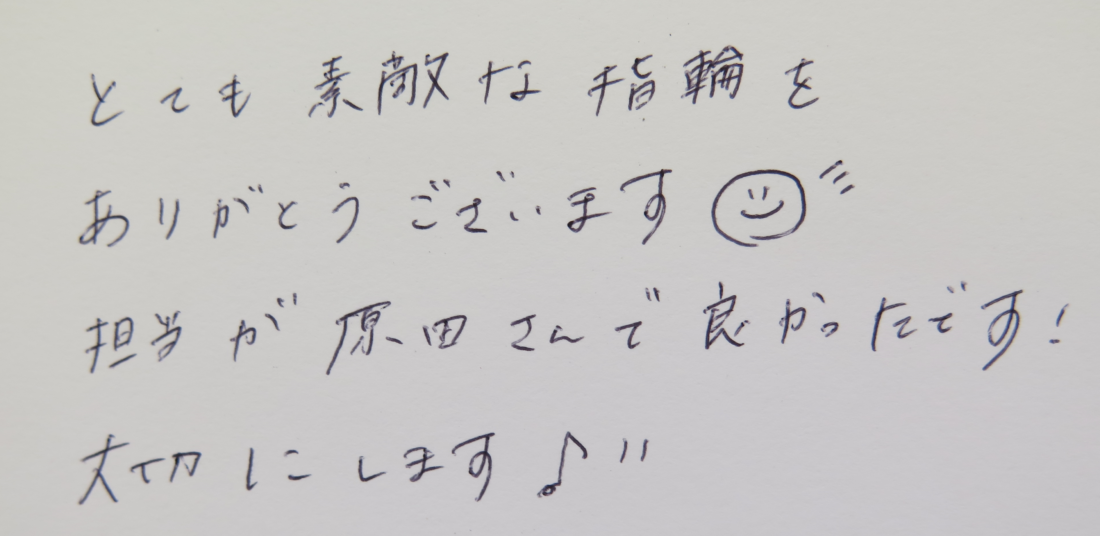 とても素敵な指輪を
ありがとうございます
担当が原田さんで良かったです!
大切にします♪